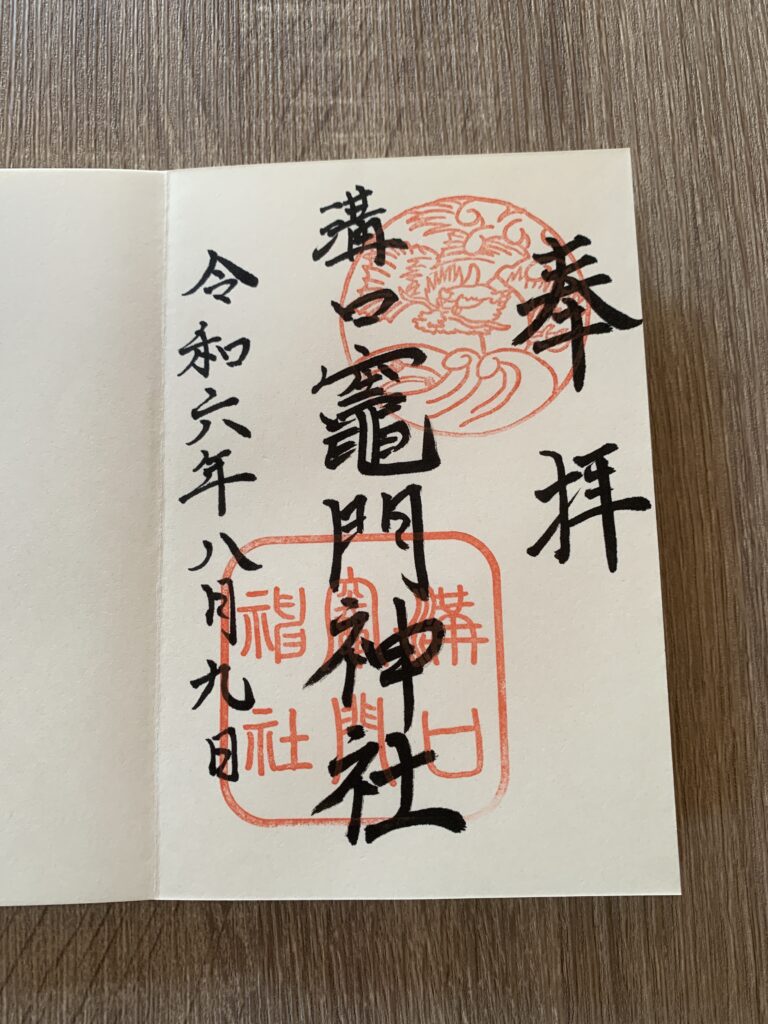 奉拝
溝口竈門神社
溝口
竈門
神社
令和六年八月九日